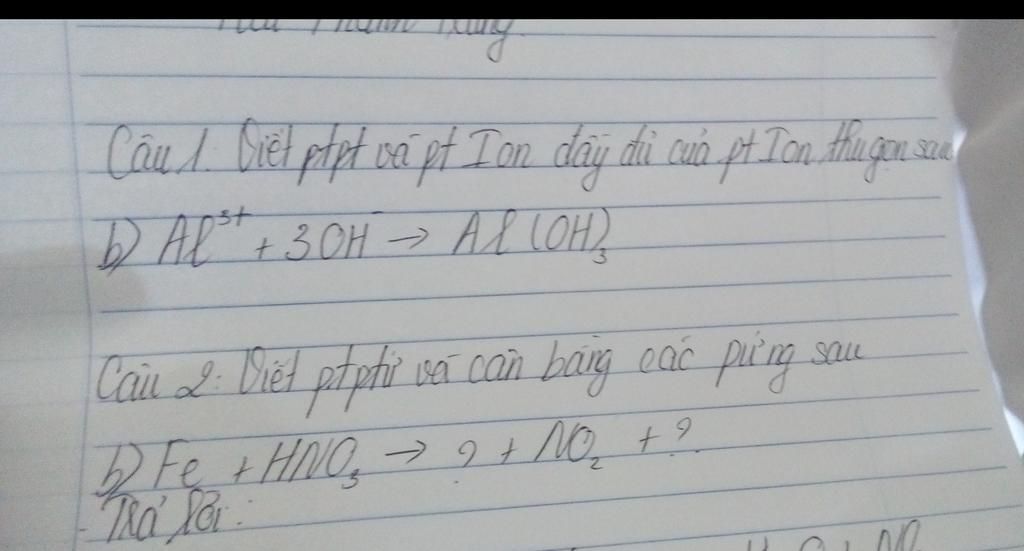 Câu 1. Viết ptpt và pt Ion đầy đủ của pt Ion thu gọn sau
b) Al³⁺ + 3OH⁻ → Al(OH)₃
Câu 2: Viết ptptử và cân bằng các pứng sau
b) Fe + HNO₃ → ? + NO₂ + ?
- Trả lời: